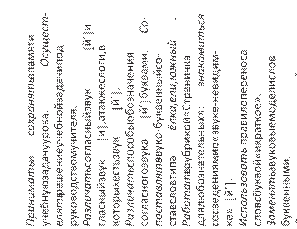 Принимать и сохранять в памяти
учебную задачу урока. Осущест-
влять решение учебной задачи под
руководством учителя.
Различать согласный звук [й'] и
гласный звук [и], а также слоги, в
которых есть звук [й'].
Различать способы обозначения
согласного звука [й'] буквами. Со-
поставлять звуко-буквенный со-
став слов типа ёлка, ели, южный.
Работать с рубрикой «Страничка
для любознательных»: знакомиться
со сведениями о звуке-невидим-
ке» [й'].
Использовать правило переноса
слов с буквой «и краткое».
Заменять звуковые модели слов
буквенными.